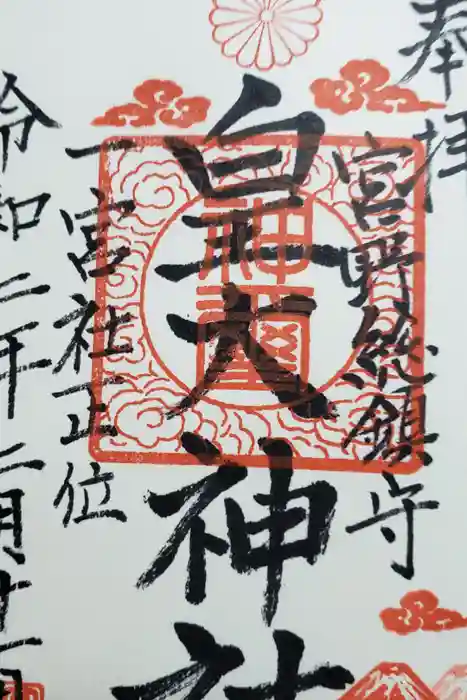 奉拝
宮野緫鎮守
皇大神社
一宮社正位
令和二年二月十一日